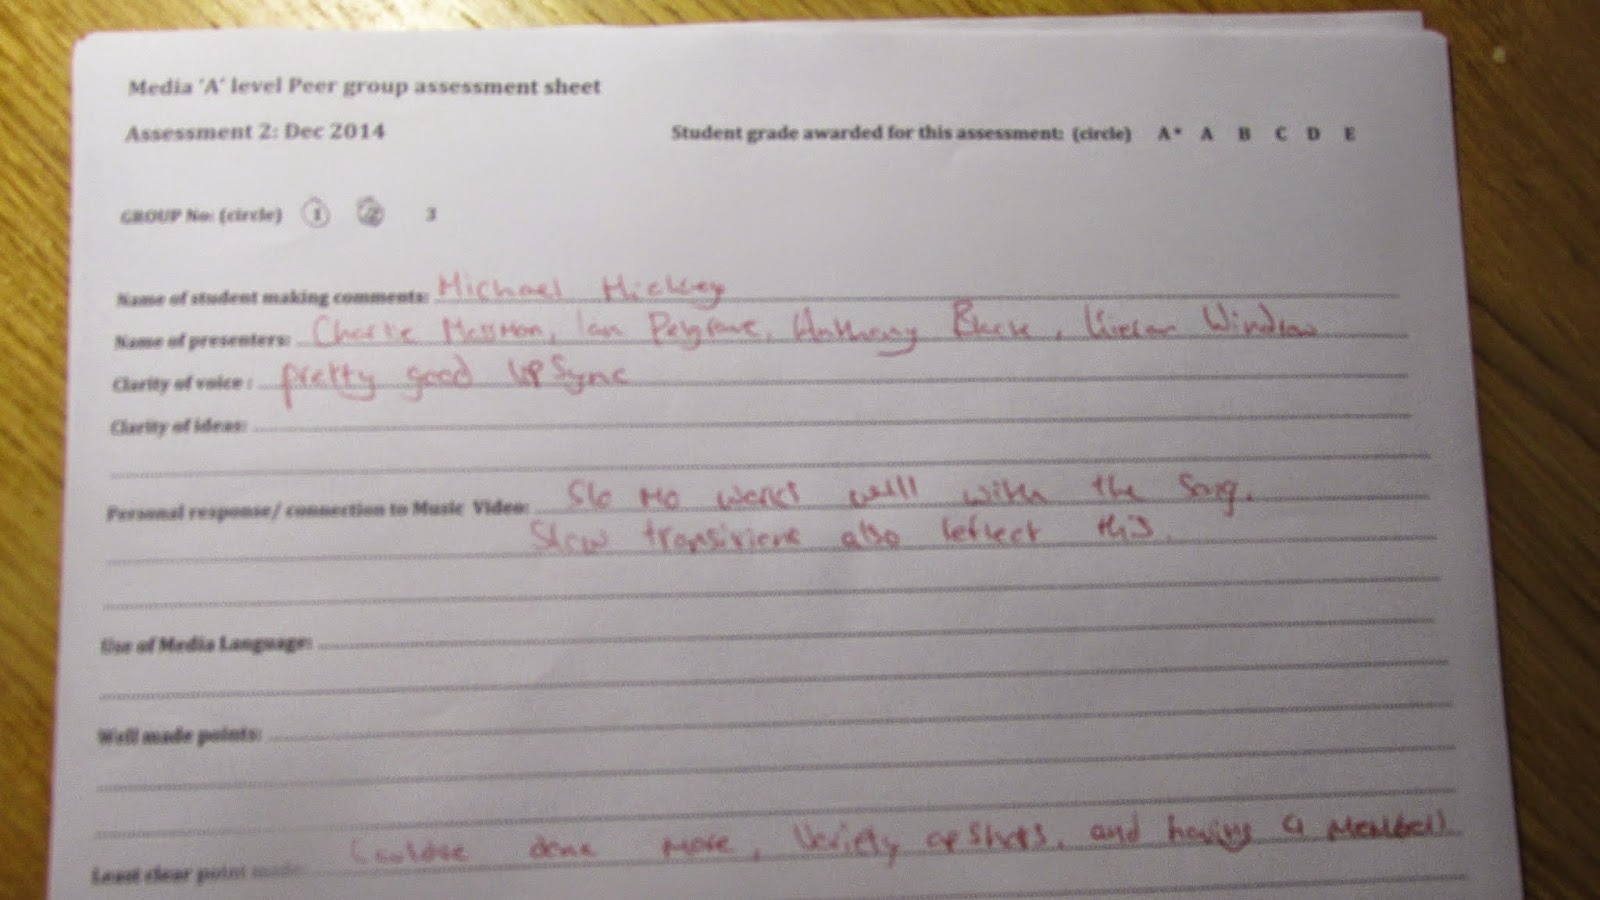 Media 'A' level Peer group assessment sheet
Assessment 2: Dec 2014 Student grade awarded for this assessment: (circle) A* A B C D E
GROUP No: (circle) 1 2 3
Name of student making comments: Michael Hickey
Name of presenters: Charlie Mossman, Ian Pelgrave, Anthony Black, Kieran Window
Clarity of voice : pretty good lip Sync
Clarity of ideas:
Personal response/ connection to Music Video: Slo Mo works well with the Song.
Slow transitions also reflect this.
Use of Media Language:
Well made points:
Least clear point made: done more, Variety of shots, and having a